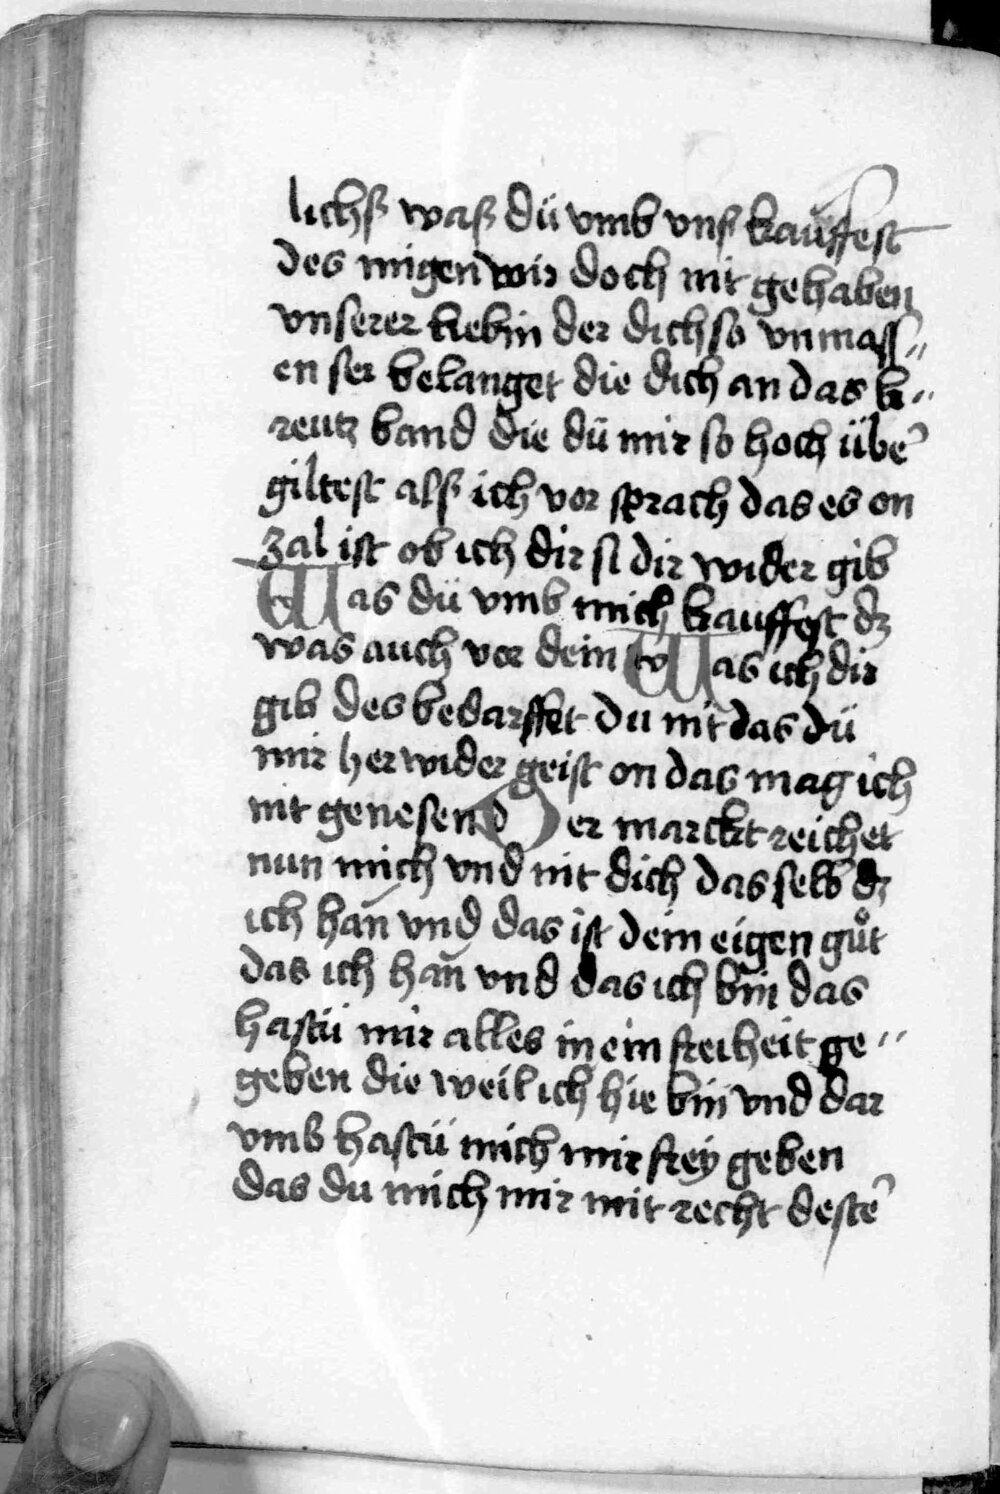 lichß waß dü vmb vnß kauffest
des migen wir doch nit gehaben
vnserer liebin der dich so vnmass〃
en ser belanget die dich an das k〃
reutz band die dü mir so hoch übe᷑
giltest alß ich vor sprach das es on
zal ist ob ich dir si dir wider gib
Was dü vmb mich kauffest dz
was auch vor dein Was ich dir
gib des bedarffet du nit das dü
mir her wider geist on das mag ich
nit genesen Der marckt reichet
nun mich vnd nit dich das selb dz
ich han̄ vnd das ist dein eigen guͦt
das ich han̄ vnd das ich bin das
hastü mir alles in ein freiheit ge〃
geben die weil ich hie bin vnd dar
vmb hastü mich mir frey geben
das du mich mir mit recht deste᷑